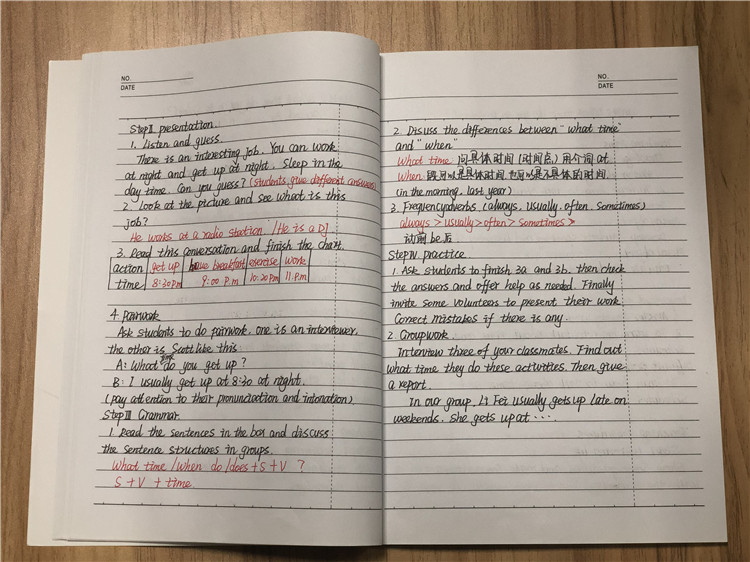 NO.
DATE
Step II presentation.
1. Listen and guess.
There is an interesting job. You can work
at night and get up at night. Sleep in the
day time. Can you guess? (students give different answers)
2. Look at the picture and see what is this
job?
He works at a radio station. /He is a DJ
3. Read this conversation and finish the chart.
action get up have breakfast exercise work
time 8:30 p.m 9:00 p.m 10:20 p.m 11 p.m
4. Pairwork
Ask students to do pairwork. one is an interviewer,
the other is Scott like this
A: What time do you get up?
B: I usually get up at 8:30 at night.
(pay attention to their pronunciation and intonation)
Step III Grammar
1 Read the sentences in the box and discuss
the sentence structures in groups.
What time /when do /does + S + V ?
S + V + time.
NO.
DATE
2. Disuss the differences between "what time"
and "when"
What time 问具体时间(时间点)用介词 at
When 既可以是具体时间 也可以是不具体的时间.
(in the morning, last year)
3. Frequency adverbs. (always. usually. often. Sometimes)
always > usually > often > sometimes >
动前 be 后
Step IV practice
1. Ask students to finish 3a and 3b. then check
the answers and offer help as needed. Finally
invite some volunteers to present their work
Correct mistakes if there is any.
2. Groupwork.
Interview three of your classmates. Find out
what time they do these activities. Then give
a report.
In our group, Li Fei usually gets up late on
weekends. She gets up at ...